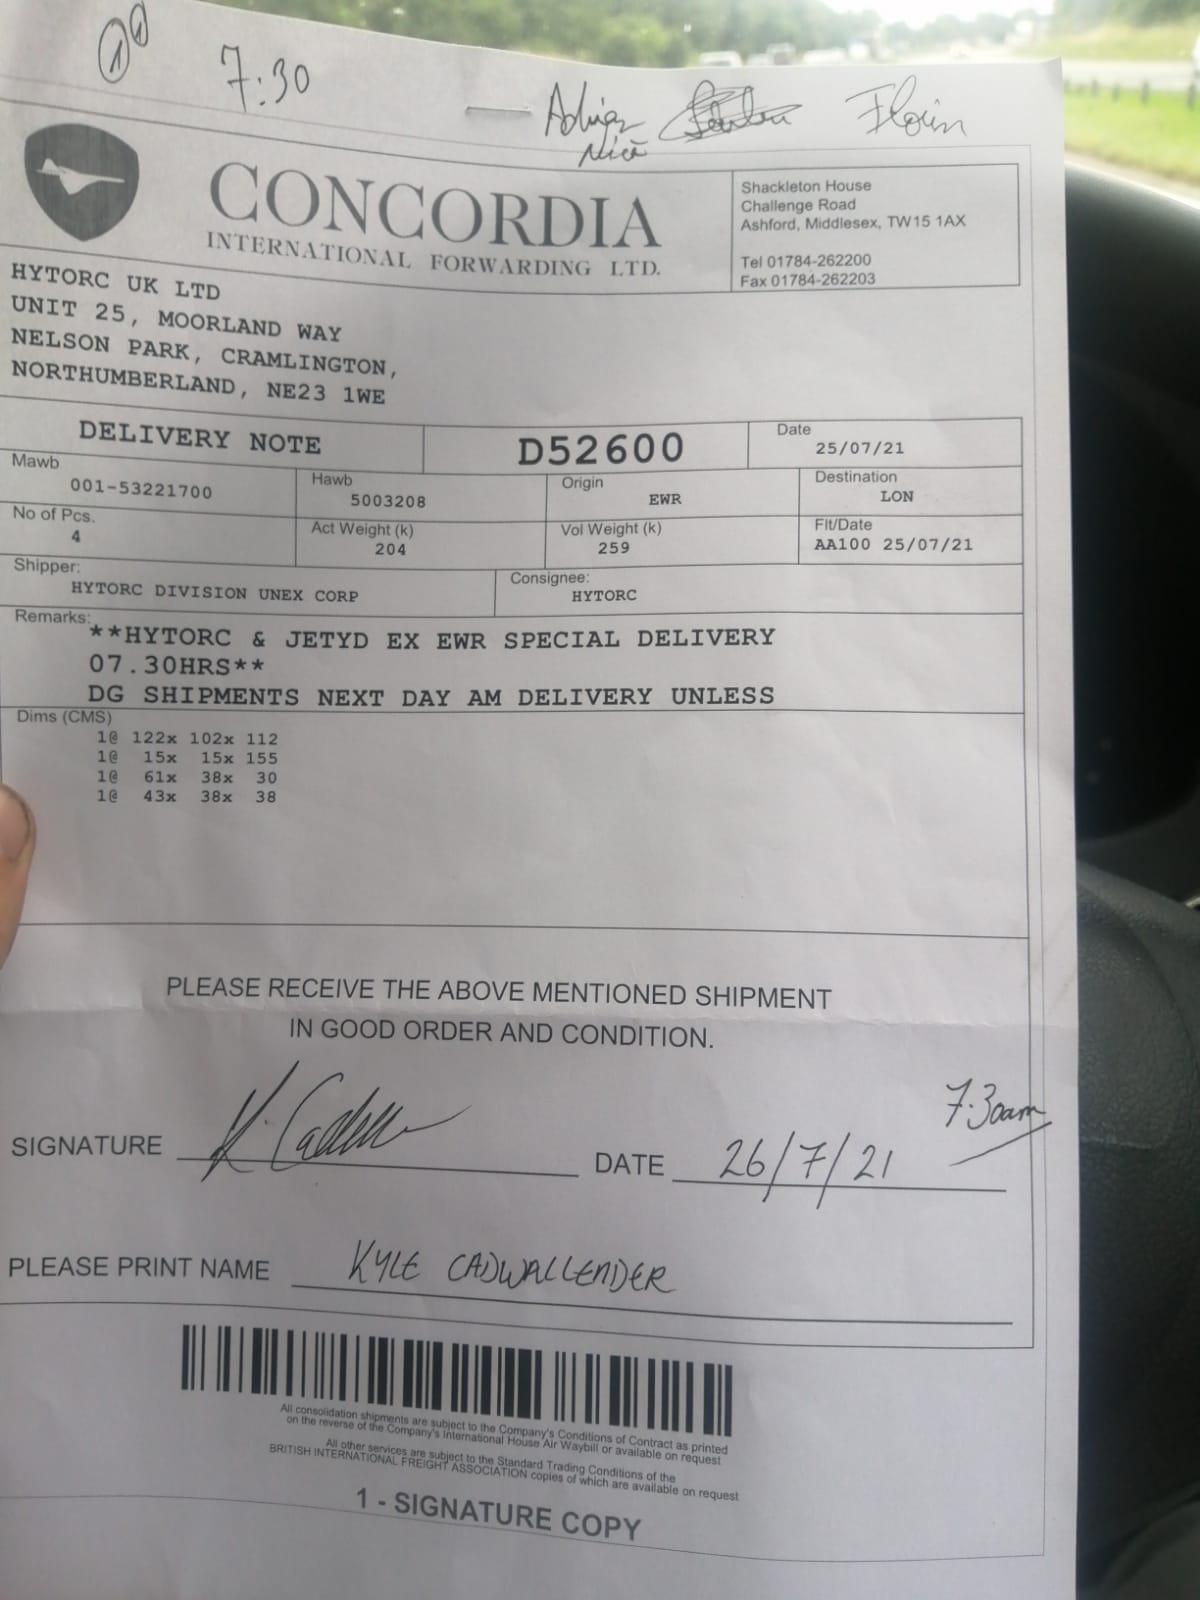 7:30
Florin
CONCORDIA
INTERNATIONAL FORWARDING LTD.
Shackleton House
Challenge Road
Ashford, Middlesex, TW15 1AX
Tel 01784-262200
Fax 01784-262203
HYTORC UK LTD
UNIT 25, MOORLAND WAY
NELSON PARK, CRAMLINGTON,
NORTHUMBERLAND, NE23 1WE
DELIVERY NOTE D52600 Date 25/07/21
Mawb 001-53221700 Hawb 5003208 Origin EWR Destination LON
No of Pcs. 4 Act Weight (k) 204 Vol Weight (k) 259 Flt/Date AA100 25/07/21
Shipper: HYTORC DIVISION UNEX CORP Consignee: HYTORC
Remarks: **HYTORC & JETYD EX EWR SPECIAL DELIVERY
07.30HRS**
DG SHIPMENTS NEXT DAY AM DELIVERY UNLESS
Dims (CMS)
1@ 122x 102x 112
1@ 15x 15x 155
1@ 61x 38x 30
1@ 43x 38x 38
PLEASE RECEIVE THE ABOVE MENTIONED SHIPMENT
IN GOOD ORDER AND CONDITION.
7.30am
SIGNATURE K. Cadwallender DATE 26/7/21
PLEASE PRINT NAME KYLE CADWALLENDER
All consolidation shipments are subject to the Company's Conditions of Contract as printed
on the reverse of the Company's International House Air Waybill or available on request
All other services are subject to the Standard Trading Conditions of the
BRITISH INTERNATIONAL FREIGHT ASSOCIATION copies of which are available on request
1 - SIGNATURE COPY